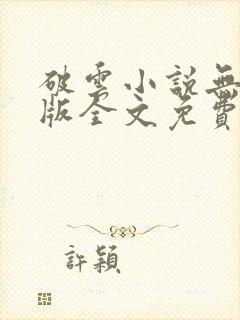 破雲小說無
版全文免費
許穎